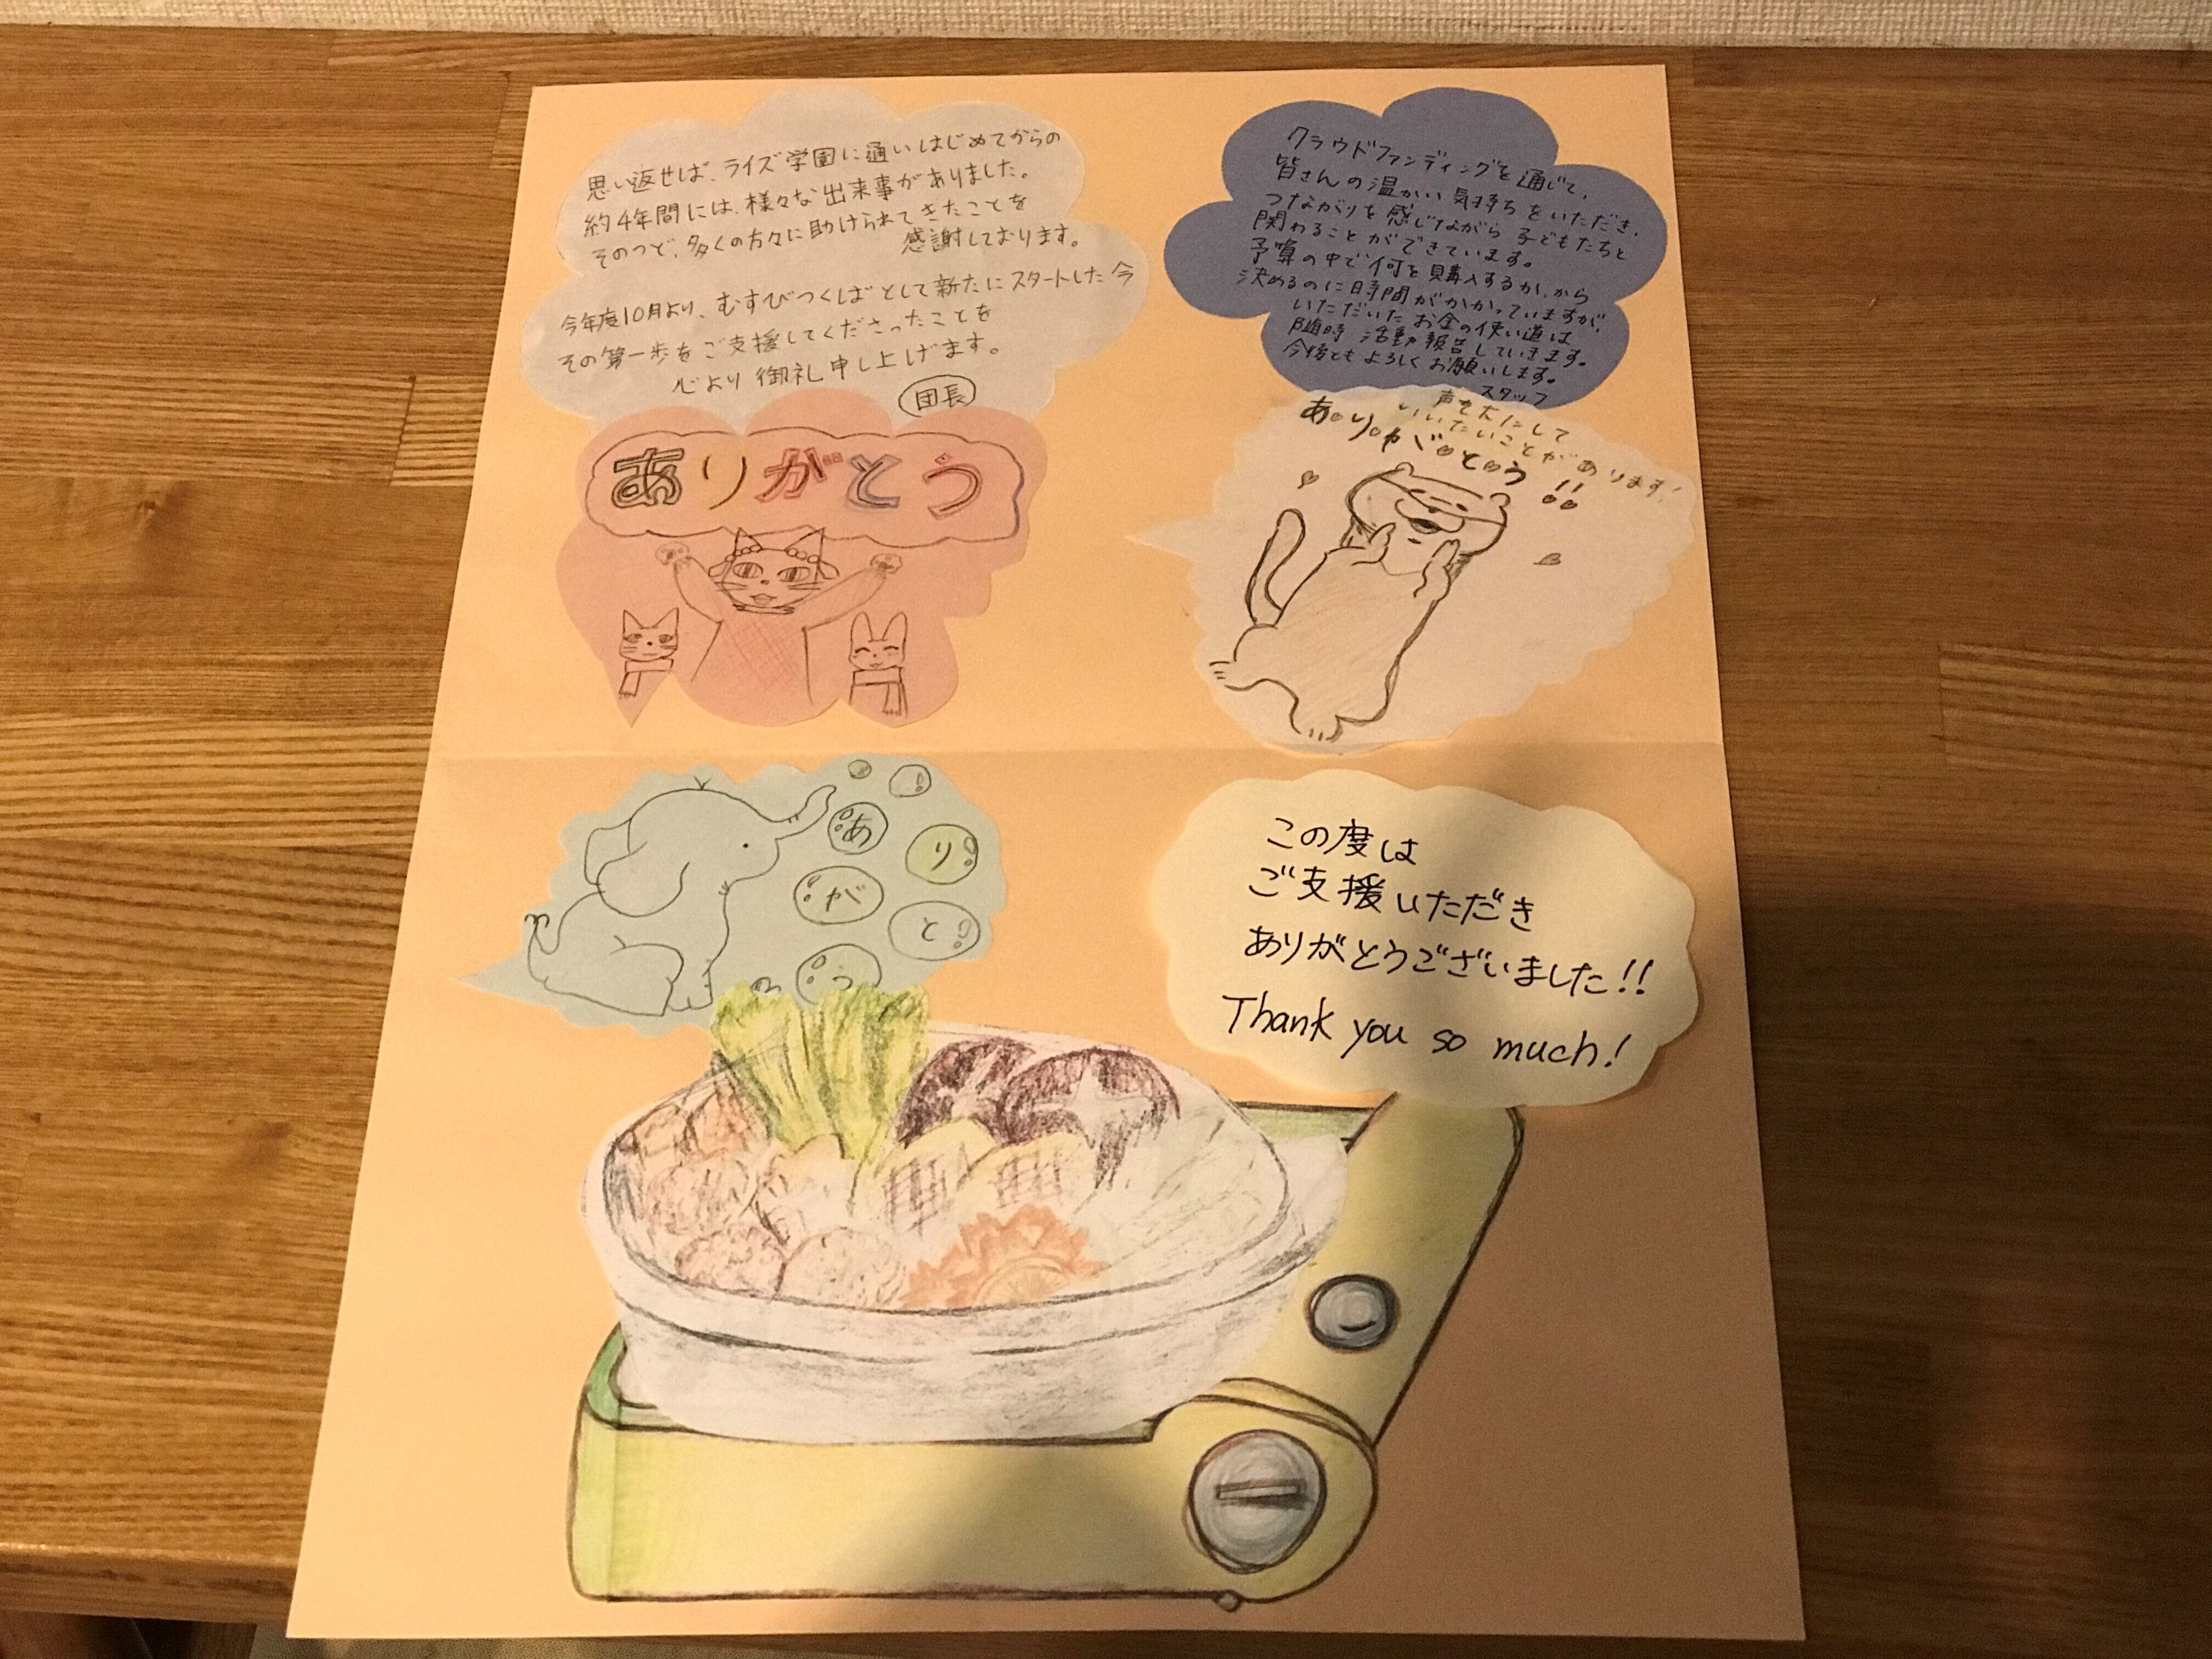 思い返せば、ライズ学園に通いはじめてからの
約4年間には、様々な出来事がありました。
そのつど、多くの方々に助けられてきたことを
感謝しております。
今年度10月より、むすびつくばとして新たにスタートした今
その第一歩をご支援してくださったことを
心より御礼申し上げます。
団長
クラウドファンディングを通じて、
皆さんの温かい気持ちをいただき、
つながりを感じながら子どもたちと
関わることができています。
予算の中で何を購入するか、から
決めるのに時間がかかっていますが、
いただいたお金の使い道は
随時活動報告していきます。
今後ともよろしくお願いします。
スタッフ
ありがとう
声を大にして
いいたいことがあります!
あ・り・が・と・う!!
あ
り
が
と
う
この度は
ご支援いただき
ありがとうございました!!
Thank you so much!